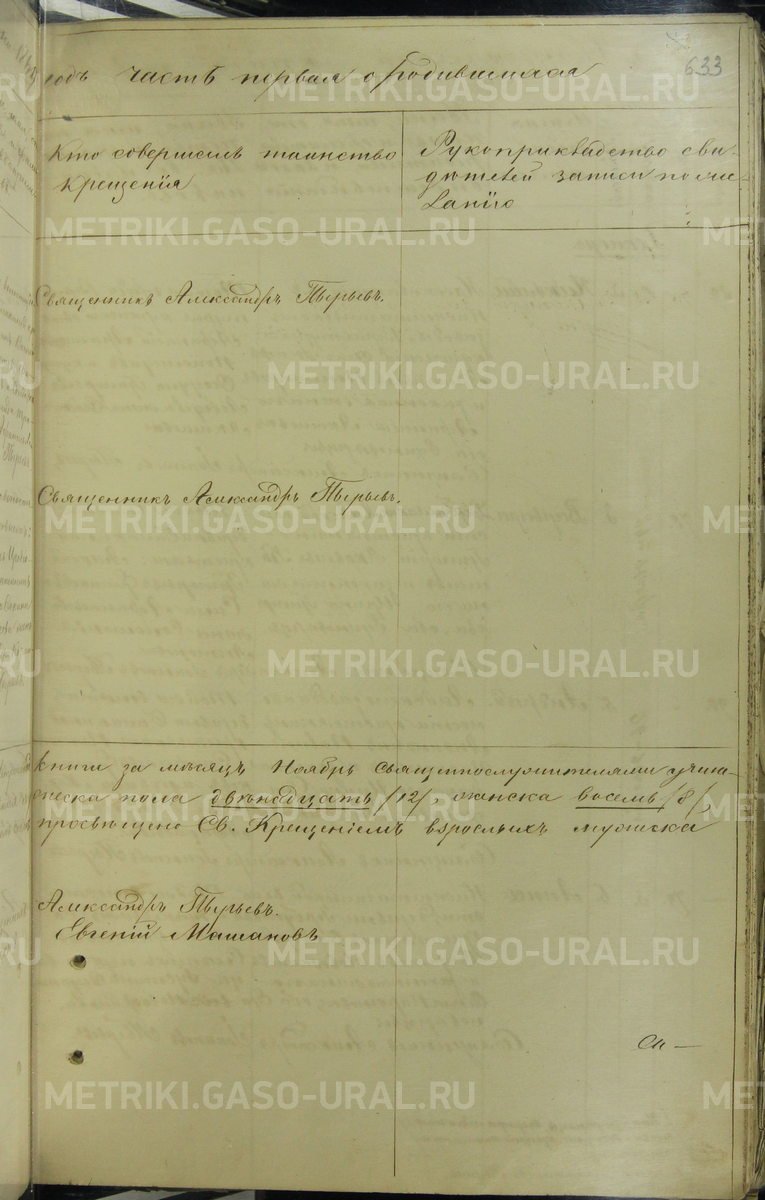 633
годъ часть первая о родившихся
Кто совершалъ таинство
крещенія
Рукоприкладство сви-
дѣтелей записи по же-
ланію
Священникъ Александръ Пырьевъ.
Священникъ Александръ Пырьевъ.
книги за мѣсяцъ Ноябрь священнослужителями учине-
жеска пола двѣнадцать /12/, женска восемь /8/,
просвѣщено Св. Крещеніемъ взрослыхъ мужска
Александръ Пырьевъ.
Евгеній Машановъ
METRIKI.GASO-URAL.RU